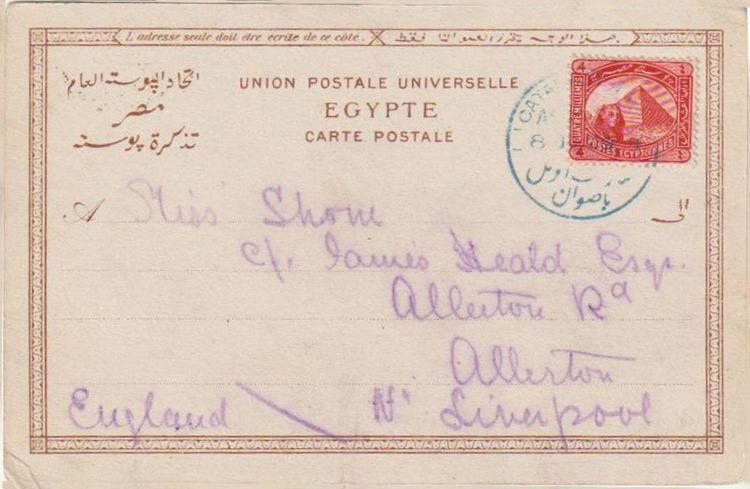 L'adresse seule doit être écrite de ce côté.
هذا الوجه يحرر العنوان فقط
اتحاد البوستة العام
مصر
تذكرة بوسته
UNION POSTALE UNIVERSELLE
EGYPTE
CARTE POSTALE
4 4
QUATRE MILLIEMES
POSTES EGYPTIENNES
4 4
CATA
8
باصوان
A
الى
Miss
c/. James Heald Esqr.
Allerton Rd
Allerton
Nr Liverpool
England